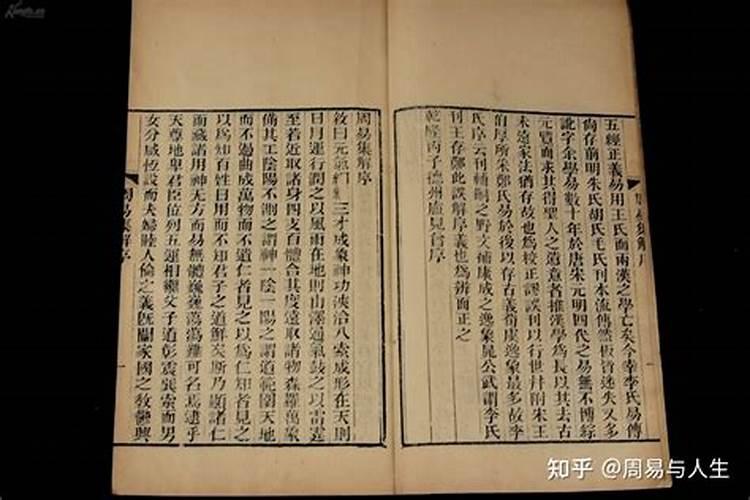 五經正義易用王氏而兩漢之學亡矣今幸李氏易傳
尙存前明朱氏胡氏毛氏刊本流傳然板皆迷失又多
訛字余學易數十年於唐宋元明四代之易無不博綜
元覽而求其得聖人之遺意者推漢學爲長以其去古
未遠家法猶存故也爲校正譌誤刊以行世幷附朱王
伯厚所朱鄭氏易於後以存古義荀虞逸象最多故李
氏序云刊輔嗣之野文補康成之逸象晁公武謂李氏
刊王存鄭此誤解序義也爲辨而正之
乾隆丙子德州盧見曾序
周易集解序
敘曰元氣絪縕三才成象神功浹洽八索成形在天則
日月運行潤之以風雨在地則山澤通氣鼓之以雷霆
至若近取諸身四支百體合其度遠取諸物森羅萬象
備其工陰陽不測之謂神一陰一陽之謂道範圍天地
而不過曲成萬物而不遺仁者見之以爲仁知者見之
以爲知百姓日用而不知君子之道鮮矣斯乃顯諸仁
而藏諸用神无方而易無體巍巍蕩蕩難可名焉逮乎
天尊地卑君臣位列五運相繼父子道彰震巽索而男
女分咸恆設而夫婦睦人倫之義旣闡家國之敎鬱興
周易集解序
知乎 @周易与人生